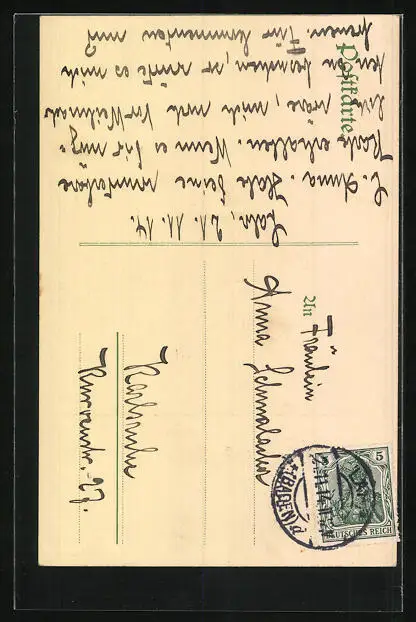 Postkarte
Lahr, 21. 11. 14.
L. Anna. Habe deine wunderbare
Karte erhalten. Wenn es dir mög-
lich wäre, mich noch vor Weihnach-
ten zu besuchen, so würde es mich
freuen. Für kommenden und
An
Fräulein
Anna Schmalacker
Karlsruhe
Kurvenstr. 27.
5
DEUTSCHES REICH
(BADEN)